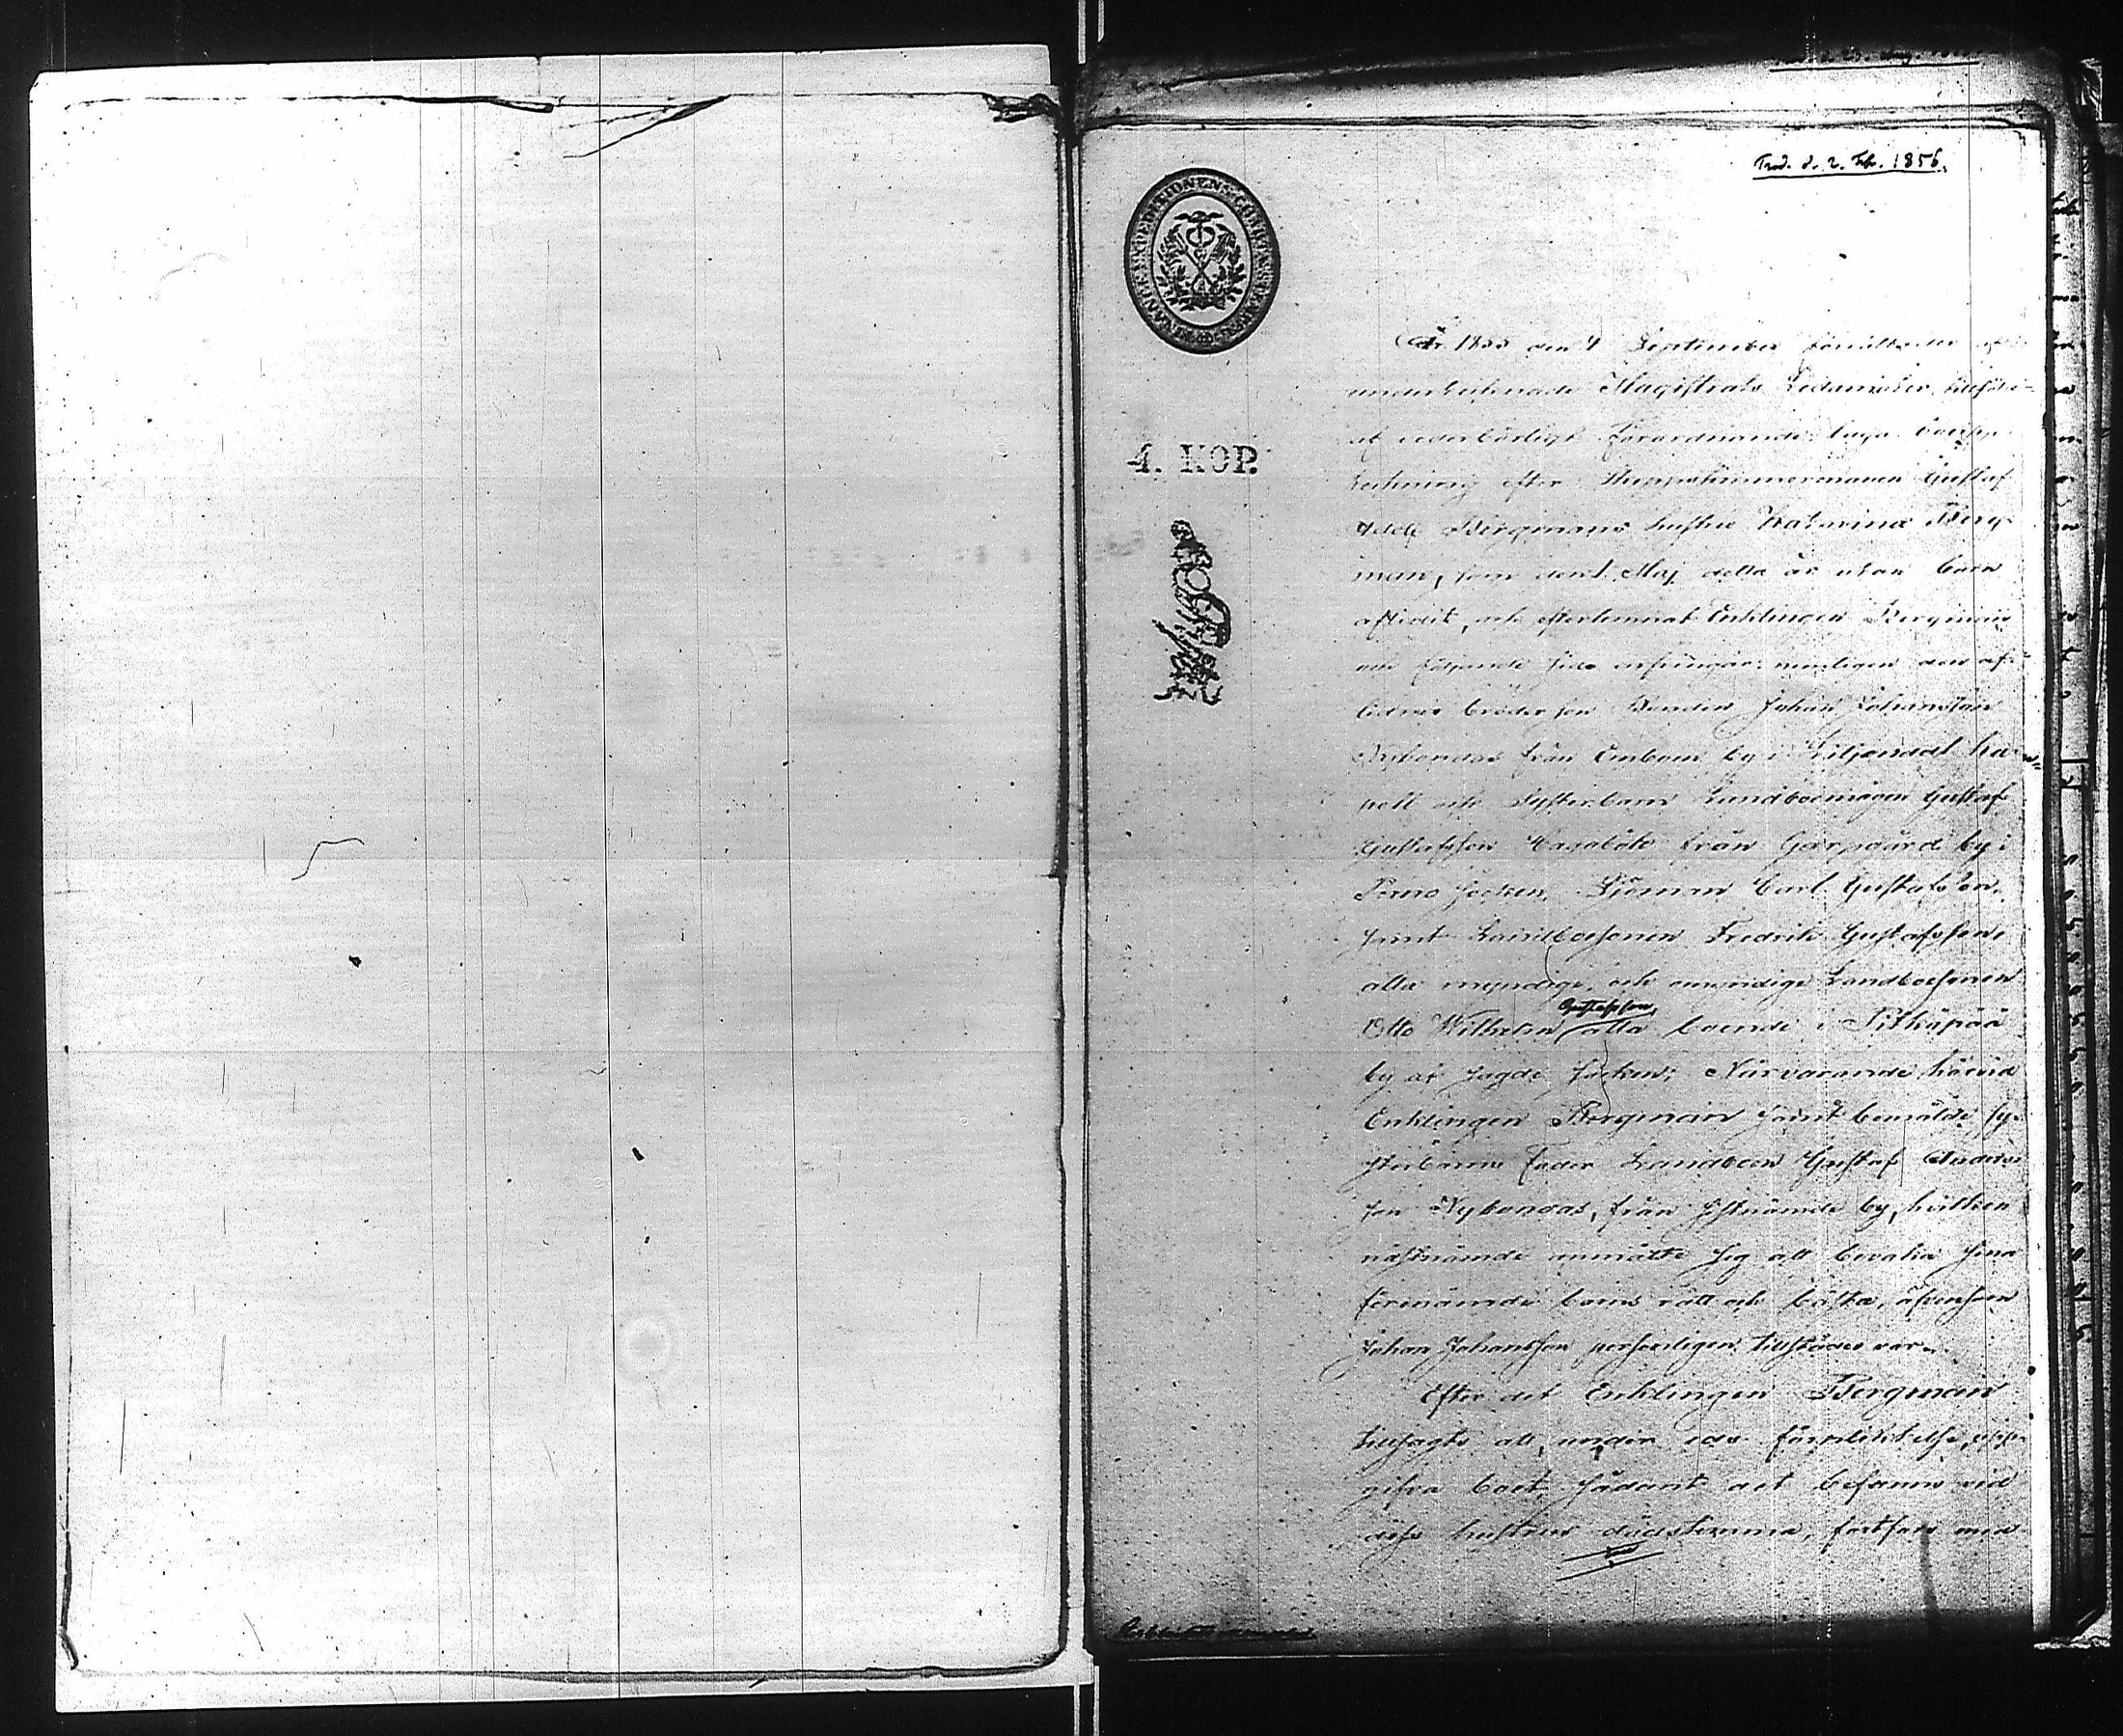 Ind. d. 2. Feb. 1856.
4. KOP.
År 1855 den 4 September förrättade
undertecknade Magistrats Ledamöter, tillfölje
af vederbörligt förordnande, laga bouppteckning
efter Skeppstimmermannen Gustaf
Adolf Bergmans hustru Katarina Bergman,
som den 1. Maj detta år utan barn
aflidit, och efterlemnat Enklingen Bergman
och följande sido arfvingar: nemligen den aflidnes
broder son Bonden Johan Johansson
Nybondas från Embom by i Liljendal kapell
och Systerbarn Landbomågen Gustaf
Gustafsson från Garpgård by i
Perno Socken, Sjöman Carl Gustafsson,
samt Landbosonen Fredrik Gustafsson,
alla myndige, och omyndige Landbosonen
Otto Wilhelm Gustafsson, alla boende i Pitkäpää
by af sagde socken; Närvarande härvid
Enklingen Bergman samt bemälde systerbarns
fader Landboen Gustaf Andersson
Nybondas, från sistnämde by, hvilken
nästnämde anmälte sig att bevaka sina
förenämde barns rätt och bästa, äfvensom
Johan Johansson personligen tillstädes var.
Efter det Enklingen Bergman
tillsagts att, under eds förpliktelse, uppgifva
boet sådant det befanns vid
dess hustrus dödstimma, fortfors med